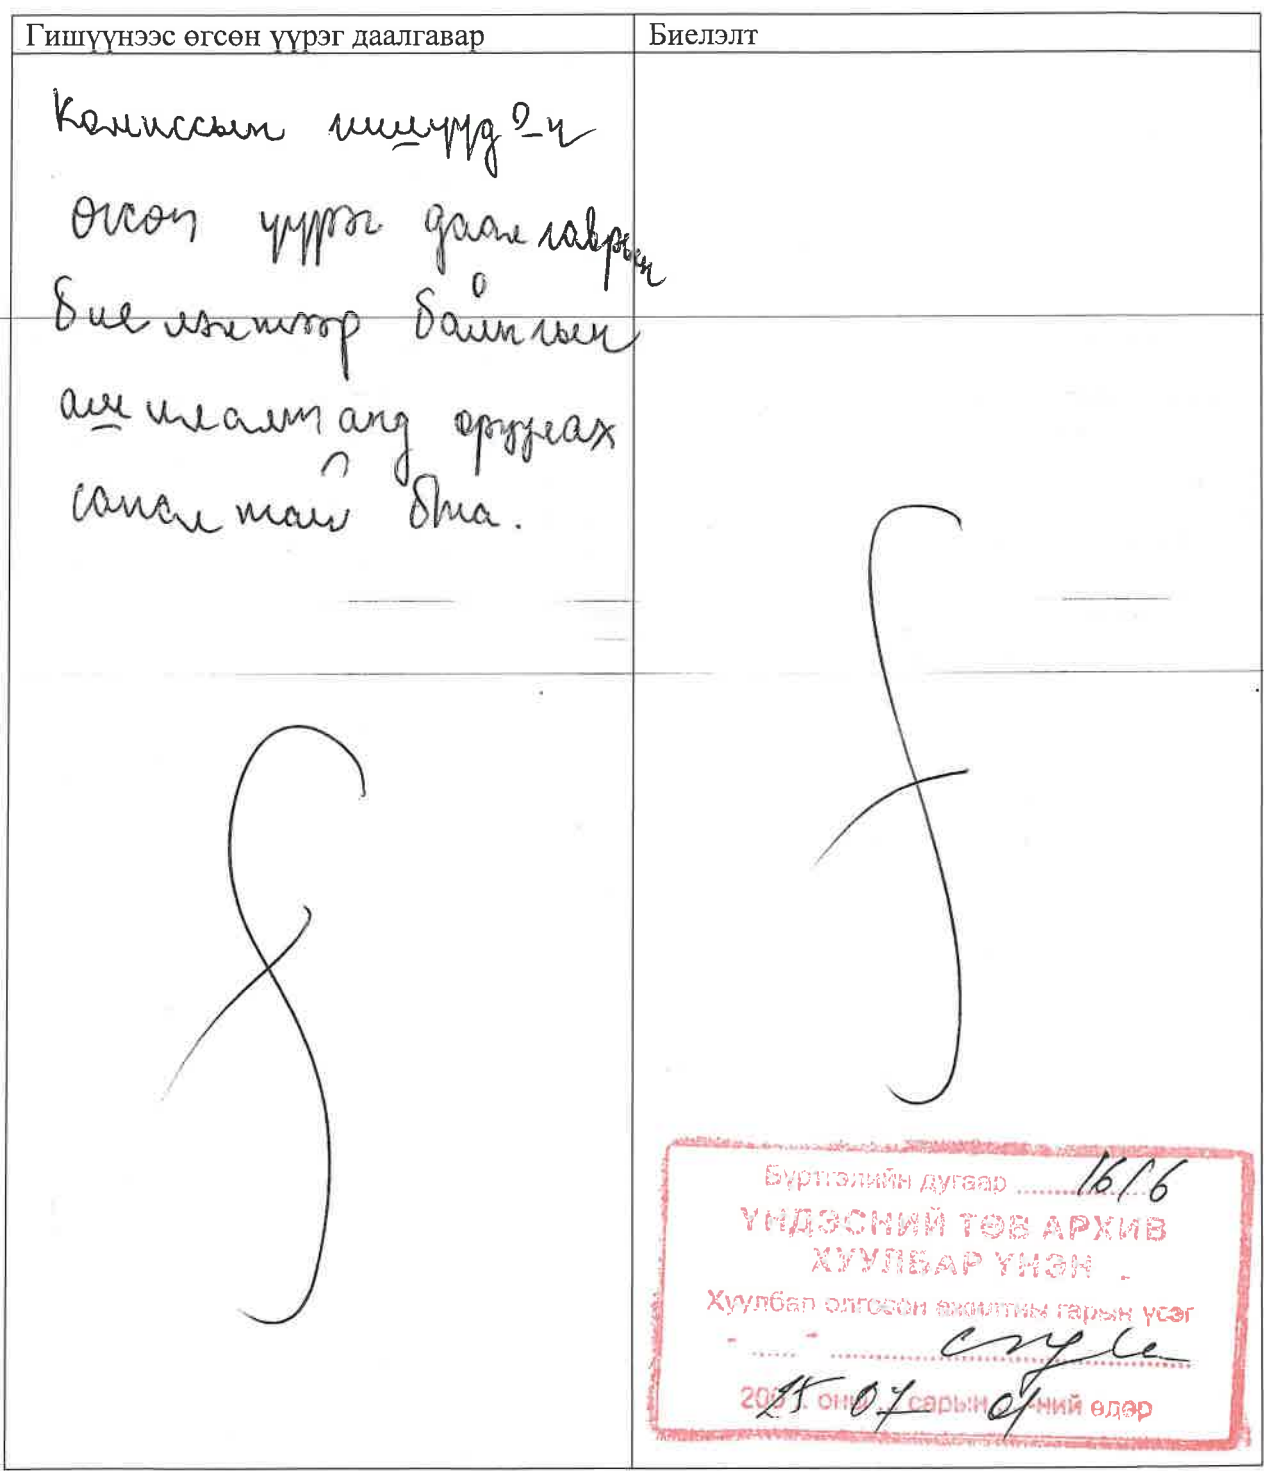 Гишүүнээс өгсөн үүрэг даалгавар
Биелэлт
Комиссын гишүүд
өгсөн үүрэг даалгаврын
биелэлтээр байнгын
ашиглалтанд оруулах
саналтай бна.
Бүртгэлийн дугаар 1616
ҮНДЭСНИЙ ТӨВ АРХИВ
ХУУЛБАР ҮНЭН
Хуулбар олгосон ажилтны гарын үсэг
200 25. оны 07 сарын 01-ний өдөр